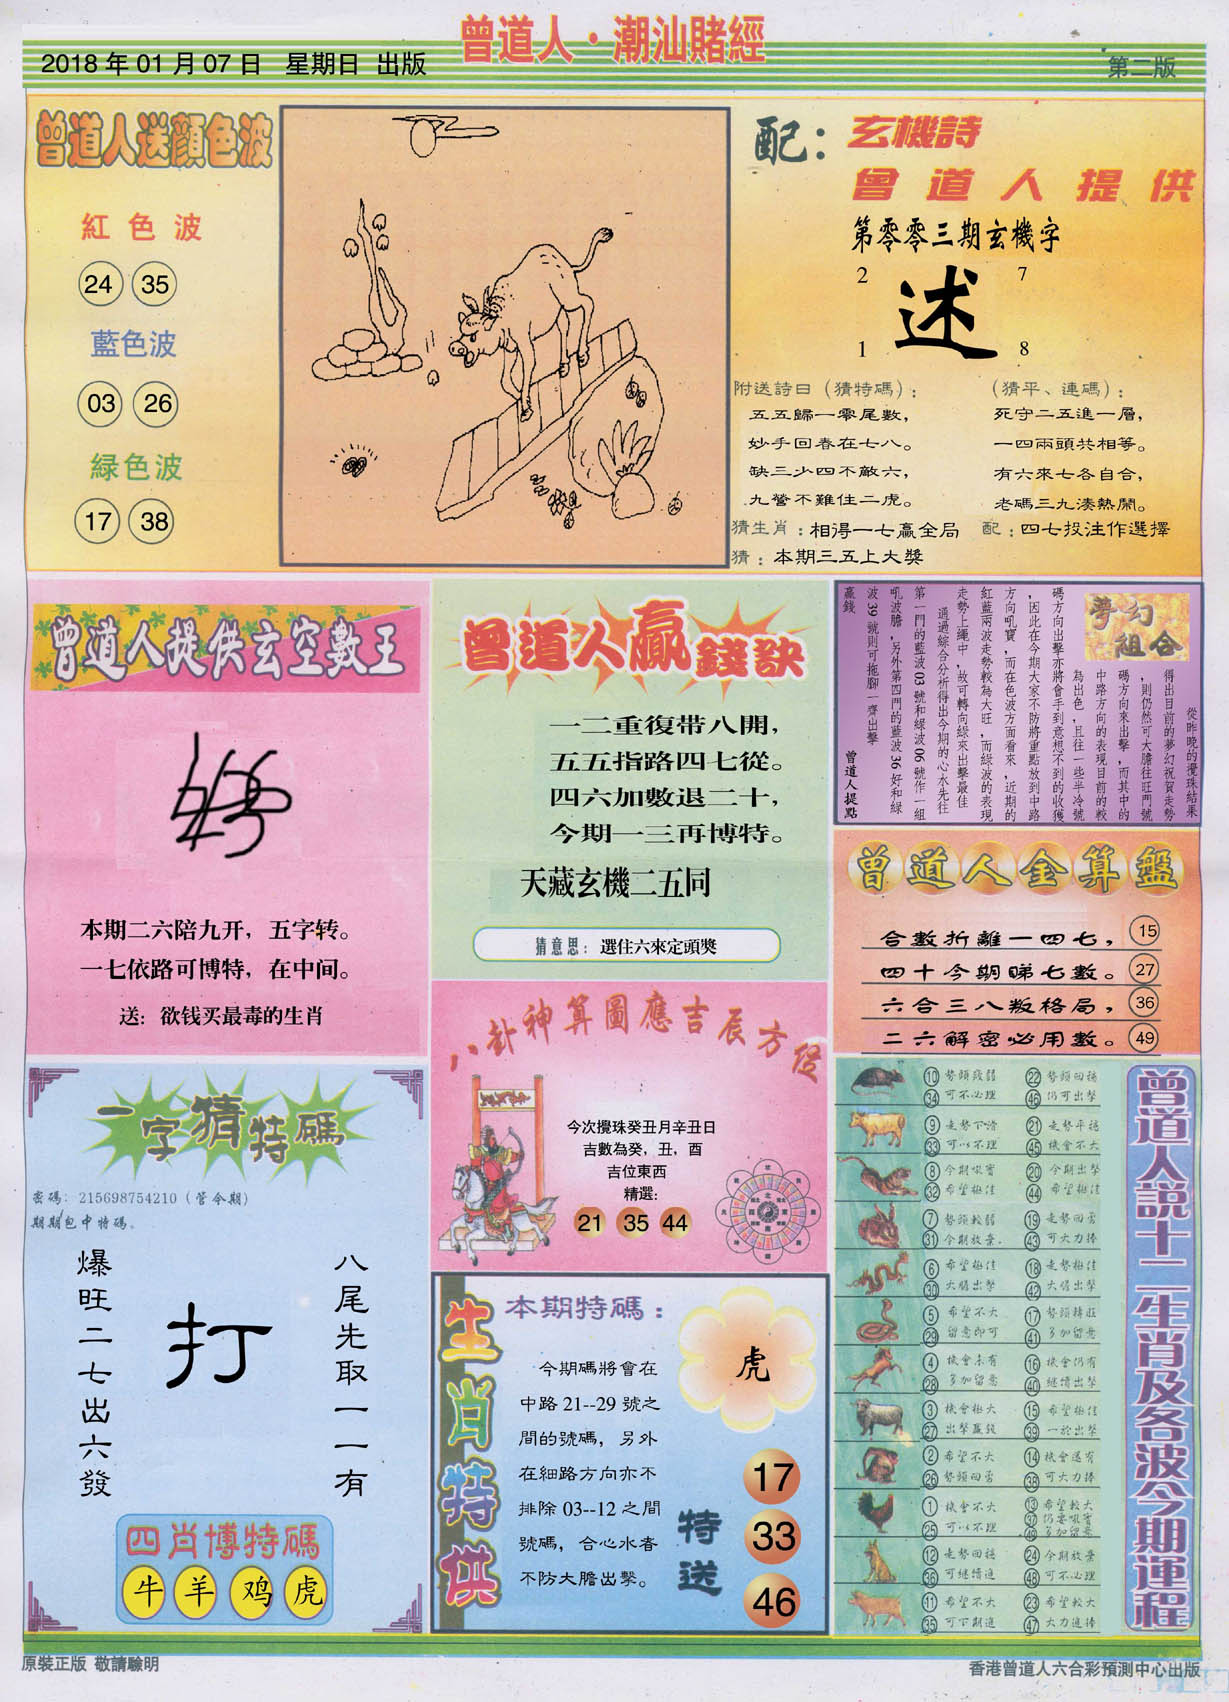 曾道人·潮汕賭經
2018年01月07日 星期日 出版
第二版
曾道人送顏色波
紅色波
24 35
藍色波
03 26
緑色波
17 38
配：
玄機詩
曾道人提供
第零零三期玄機字
2 7
述
1 8
附送詩曰（猜特碼）：
五五歸一零尾數，
妙手回春在七八。
缺三少四不敵六，
九營不難住二虎。
（猜平、連碼）：
死守二五進一層，
一四兩頭共相等。
有六來七各自合，
老碼三九湊熱鬧。
猜生肖：相得一七贏全局
配：四七投注作選擇
猜：本期三五上大獎
曾道人提供玄空數王
本期二六陪九开，五字转。
一七依路可博特，在中间。
送：欲钱买最毒的生肖
曾道人贏錢訣
一二重復带八開，
五五指路四七從。
四六加數退二十，
今期一三再博特。
天藏玄機二五同
猜意思：選住六來定頭獎
夢幻
組合
從昨晚的攪珠結果
得出目前的夢幻祝賀走勢
，則仍然可大膽往旺門號
碼方向來出擊，而其中的
中路方向的表現目前的較
為出色，且往一些半冷號
碼方向出擊亦將會手到意想不到的收獲
，因此在今期大家不防將重點放到中路
方向吼寶，而在色波方面看來，近期的
紅藍兩波走勢較為大旺，而綠波的表現
走勢上繩中，故可轉向綠來出擊最佳
通過綜合分析得出今期的心水先往
第一門的藍波03號和綠波06號作一組
吼波膽，另外第四門的藍波36好和綠
波39號則可拖腳一齊出擊
贏錢
曾道人提點
曾道人金算盤
合數折離一四七， 15
四十今期睇七數。 27
六合三八叛格局， 36
二六解密必用數。 49
八卦神算圖應吉辰方位
今次攪珠癸丑月辛丑日
吉數為癸，丑，酉
吉位東西
精選：
21 35 44
一字猜特碼
密碼：215698754210（管今期）
期期包中特碼。
八尾先取一一有
打
爆旺二七出六發
四肖博特碼
牛 羊 鸡 虎
生肖特供
本期特碼：
今期碼將會在
中路21--29號之
間的號碼，另外
在細路方向亦不
排除03--12之間
號碼，合心水者
不防大膽出擊。
虎
特送
17
33
46
曾道人説十二生肖及各波今期運程
10 勢頭殘弱 22 勢頭回穩
34 可不必理 46 仍可出擊
9 走勢下滑 21 走勢平穩
33 可以不理 45 機會不大
8 今期吼寶 20 今期出擊
32 希望極佳 44 希望極佳
7 勢頭較弱 19 走勢回勇
31 今期放棄. 43 可大力捧
6 希望極佳 18 走勢極佳
30 大膽出擊 42 大膽出擊
5 希望不大 17 勢頭轉旺
29 留意即可 41 多加留意
4 機會未有 16 機會仍有
28 多加留意 40 繼續出擊
3 機會極大 15 希望極佳
27 出擊贏錢 39 一於出擊
2 希望不大 14 機會還有
26 勢頭回勇 38 可大力捧
1 機會不大 13 希望較大
25 可以不理 37 仍要吼寶
49 多加留意
12 走勢回穩 24 今期放棄
36 可繼續進 48 可不必理
11 希望不大 23 希望較大
35 可下期進 47 大力進捧
原裝正版 敬請驗明
香港曾道人六合彩預測中心出版